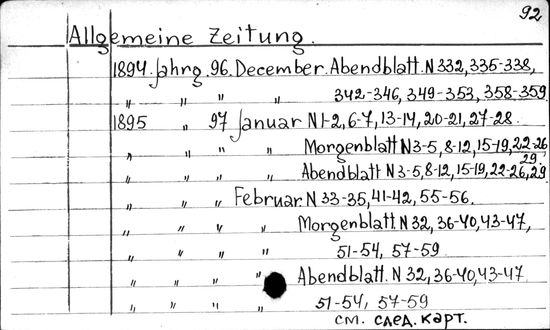 92
Allgemeine Zeitung.
1894. Jahrg. 96. December. Abendblatt. N 332, 335-338,
" " " " 342-346, 349-353, 358-359
1895 " 97 Januar N 1-2, 6-7, 13-14, 20-21, 27-28.
" " " " Morgenblatt N 3-5, 8-12, 15-19, 22-26
29
" " " " Abendblatt N 3-5, 8-12, 15-19, 22-26, 29
" " Februar N 33-35, 41-42, 55-56.
" " " " Morgenblatt N 32, 36-40, 43-47,
" " " " 51-54, 57-59
" " " " Abendblatt. N 32, 36-40, 43-47
" " " " 51-54, 57-59
см. след. карт.